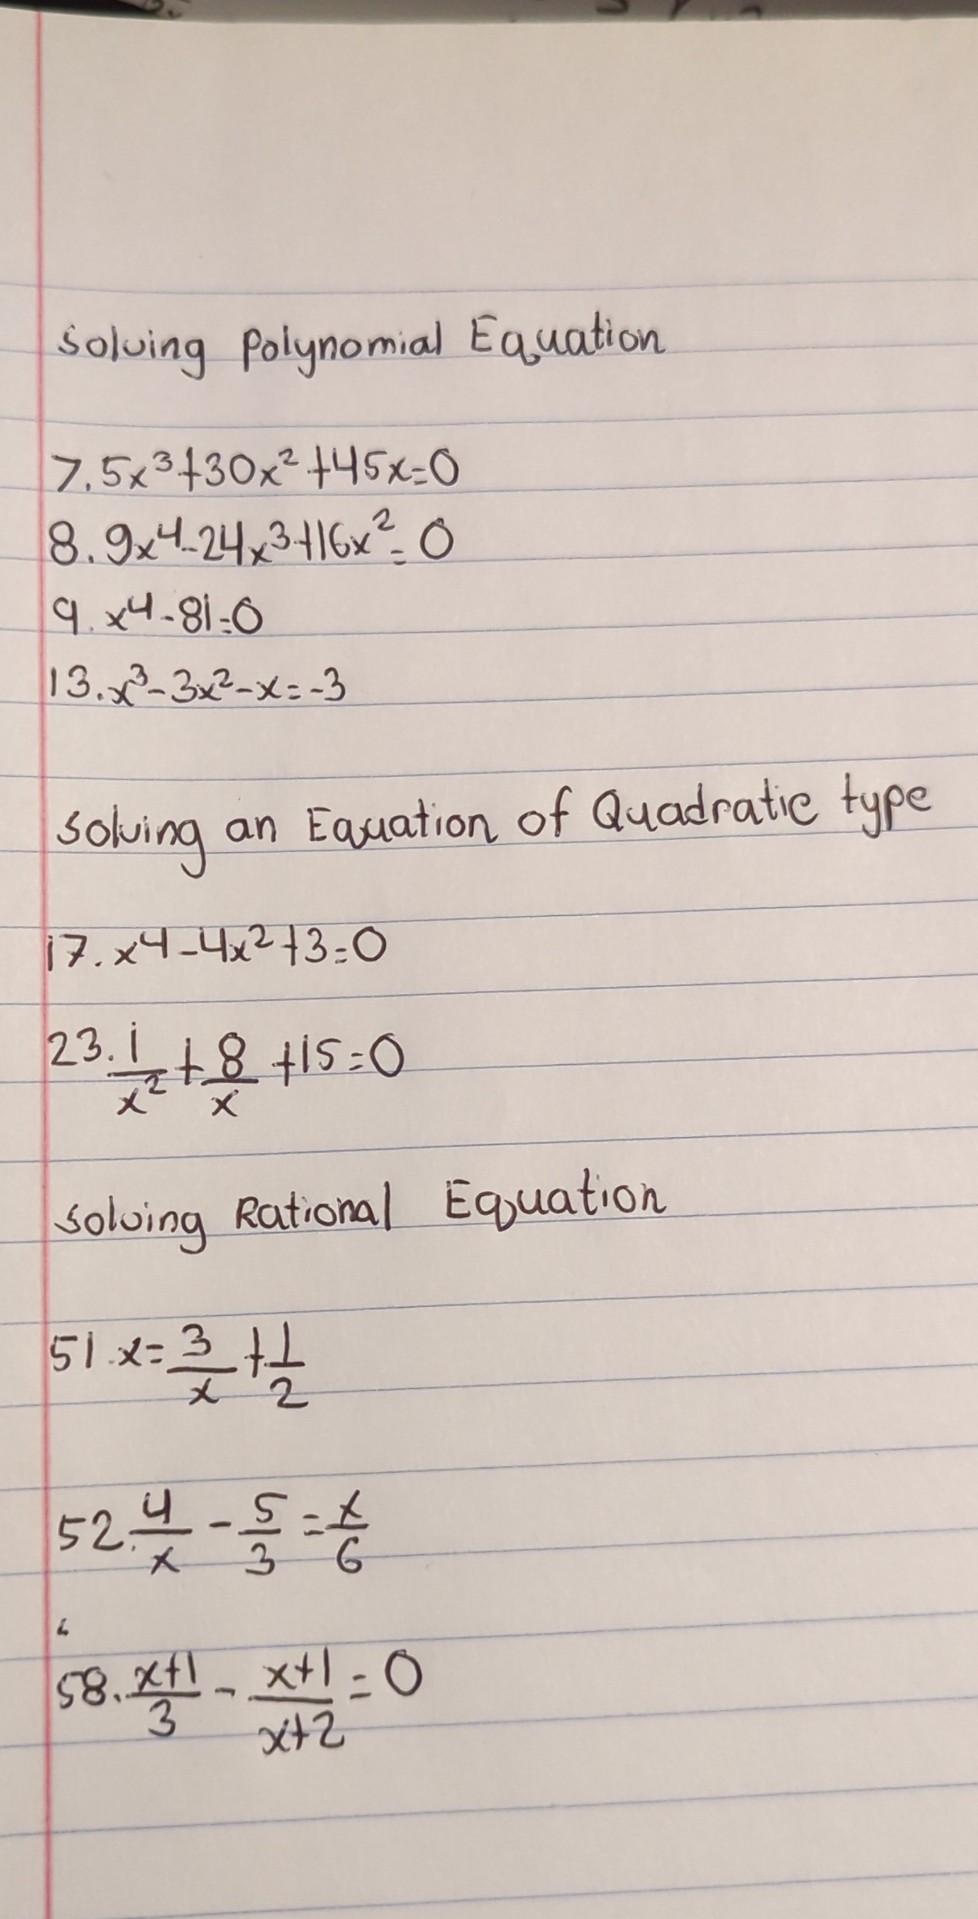 Solving Polynomial Equation
7. 5x³+30x²+45x=0
8. 9x⁴-24x³+16x²=0
9. x⁴-81=0
13. x³-3x²-x=-3
Solving an Equation of Quadratic type
17. x⁴-4x²+3=0
23. 1/x² + 8/x +15=0
Solving Rational Equation
51. x= 3/x + 1/2
52. 4/x - 5/3 = x/6
58. (x+1)/3 - (x+1)/(x+2) = 0